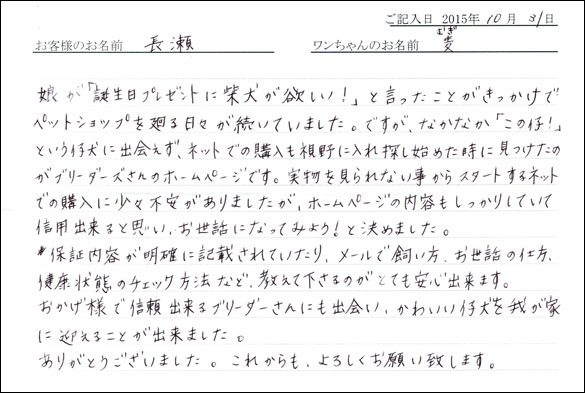 ご記入日 2015年 10 月 31日
お客様のお名前 長瀬 ワンちゃんのお名前 麦
むぎ
娘が「誕生日プレゼントに柴犬が欲しい！」と言ったことがきっかけで
ペットショップを廻る日々が続いていました。ですが、なかなか「この仔！」
という仔犬に出会えず、ネットでの購入も視野に入れ探し始めた時に見つけたの
がブリーダーズさんのホームページです。実物を見られない事からスタートするネット
での購入に少々不安がありましたが、ホームページの内容もしっかりしていて
信用出来ると思い、お世話になってみよう！と決めました。
*保証内容が明確に記載されていたり、メールで飼い方、お世話の仕方、
健康状態のチェック方法など、教えて下さるのがとても安心出来ます。
おかげ様で信頼出来るブリーダーさんにも出会い、かわいい仔犬を我が家
に迎えることが出来ました。
ありがとうございました。これからも、よろしくお願い致します。